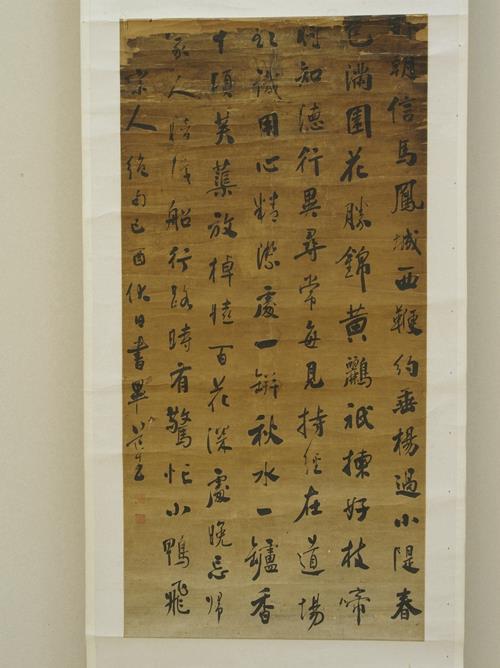 朝信馬鳳城西鞭約垂楊過小隄春
色滿園花勝錦黃鸝祇揀好枝啼
知德行異尋常每見持經在道場
識用心精潔處一缾秋水一鑪香
十頃芙蕖放棹遲百花深處晚忘歸
家人暗識船行路時有驚忙小鴨飛
宋人絕句己酉伏日書